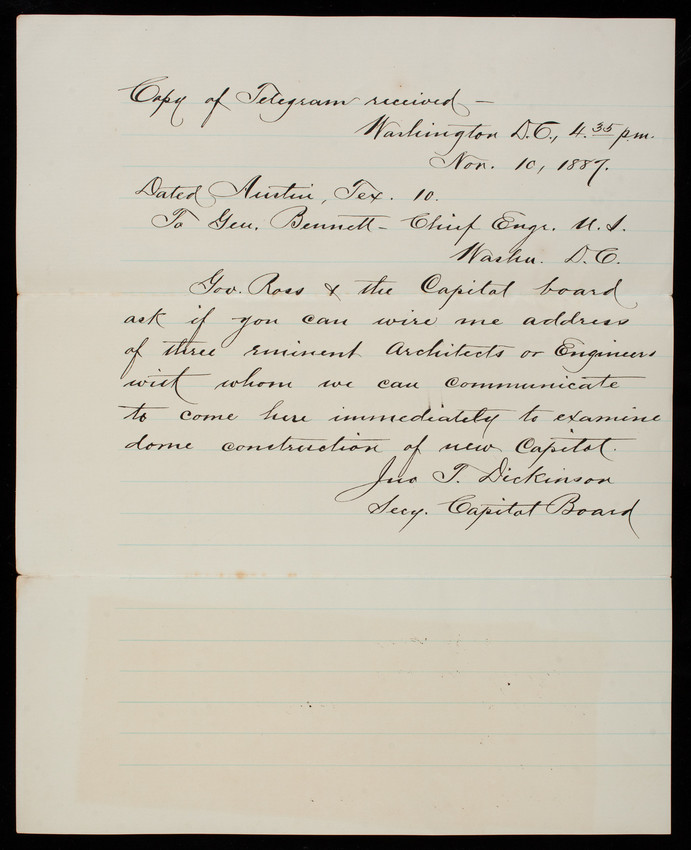 Copy of Telegram received —
Washington D.C., 4.35 p.m.
Nov. 10, 1887.
Dated Austin, Tex. 10.
To Gen. Bennett – Chief Engr. U.S.
Washn. D.C.
Gov. Ross & the Capitol board
ask if you can wire me address
of three eminent Architects or Engineers
with whom we can communicate
to come here immediately to examine
dome construction of new Capitol.
Jno T. Dickinson
Secy. Capitol Board